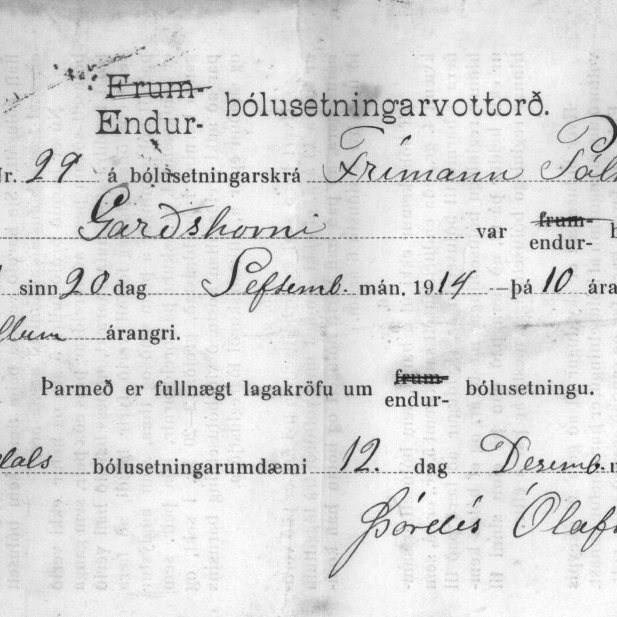 Frum-
Endur- bólusetningarvottorð.
Nr. 29 á bólusetningarskrá Frímann Pál
Garðshorni var frum-
endur-
sinn 20 dag Septemb. mán. 1914 —þá 10 ára
árangri.
Þarmeð er fullnægt lagakröfu um frum-
endur- bólusetningu.
dals bólusetningarumdæmi 12. dag Desemb.
Þórdís Ólaf